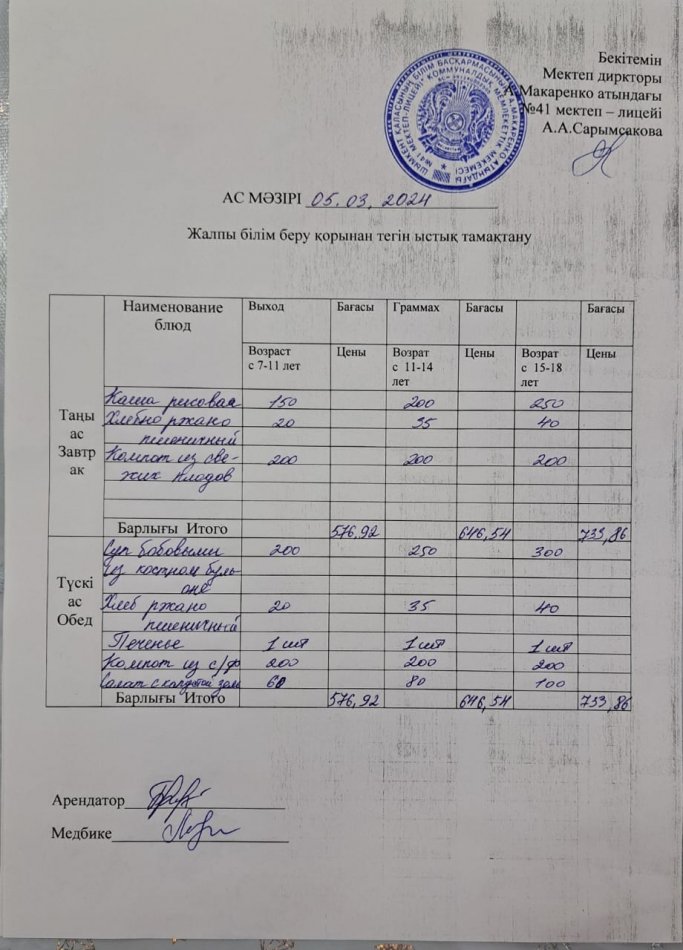 Бекітемін
Мектеп диркторы
А.Макаренко атындағы
№41 мектеп – лицейі
А.А.Сарымсакова
АС МӘЗІРІ 05.03.2024
Жалпы білім беру қорынан тегін ыстық тамақтану
Наименование блюд Выход Бағасы Граммах Бағасы Бағасы
Возраст с 7-11 лет Цены Возрат с 11-14 лет Цены Возрат с 15-18 лет Цены
Таңы ас Завтр ак
Каша рисовая 150 200 250
Хлебно ржано 20 35 40
пшеничный
Компот из све- 200 200 200
жих плодов
Барлығы Итого 576,92 646,54 733,86
Түскі ас Обед
Суп бобовыми 200 250 300
из костном буль-
оне
Хлеб ржано 20 35 40
пшеничный
Печенье 1 шт 1 шт 1 шт
Компот из с/ф 200 200 200
Салат с 60 80 100
Барлығы Итого 576,92 646,54 733,86
Арендатор
Медбике